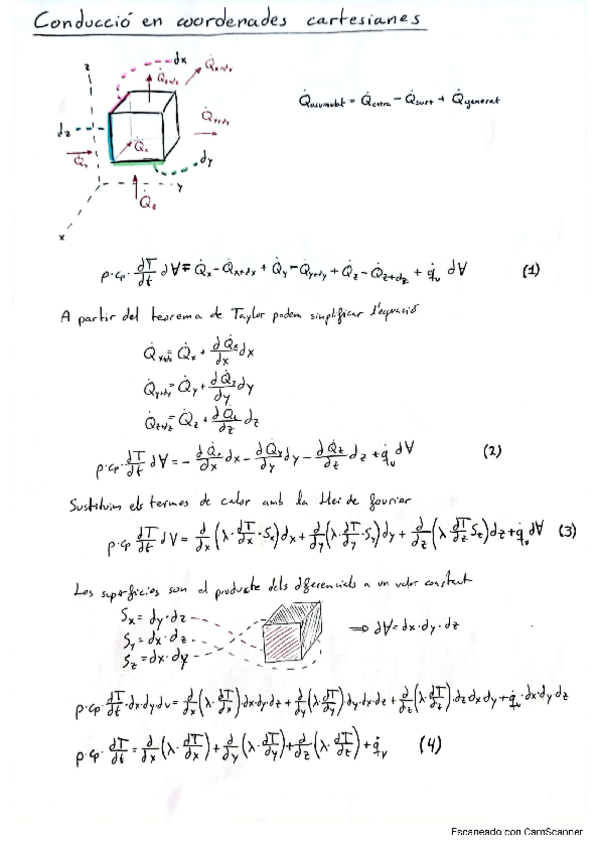 Conducció en coordenades cartesianes
z
dx
Q̇z+dz
Q̇x+dx
dz
Q̇y+dy
Q̇x
Q̇y
dy
y
Q̇z
x
Q̇acumulat = Q̇entra - Q̇surt + Q̇generat
ρ·cp·dT/dt d∀ = Q̇x - Q̇x+dx + Q̇y - Q̇y+dy + Q̇z - Q̇z+dz + q̇v d∀ (1)
A partir del teorema de Taylor podem simplificar l'equació
Q̇x+dx = Q̇x + dQ̇x/dx dx
Q̇y+dy = Q̇y + dQ̇y/dy dy
Q̇z+dz = Q̇z + dQ̇z/dz dz
ρ·cp·dT/dt d∀ = - dQ̇x/dx dx - dQ̇y/dy dy - dQ̇z/dz dz + q̇v d∀ (2)
Sustituim els termes de calor amb la llei de fourier
ρ·cp dT/dt d∀ = d/dx(λ·dT/dx·Sx)dx + d/dy(λ·dT/dy·Sy)dy + d/dz(λ dT/dz Sz)dz + q̇v d∀ (3)
Les superficies son el producte dels diferencials a un valor constant
Sx = dy·dz
Sy = dx·dz
Sz = dx·dy
⇒ d∀ = dx·dy·dz
ρ·cp·dT/dt·dx·dy·dv = d/dx(λ·dT/dx)·dx·dy·dz + d/dy(λ·dT/dy)·dy·dx·dz + d/dz(λ·dT/dz)·dz dx dy + q̇v·dx·dy·dz
ρ·cp·dT/dt = d/dx(λ·dT/dx) + d/dy(λ·dT/dy) + d/dz(λ·dT/dz) + q̇v (4)
Escaneado con CamScanner